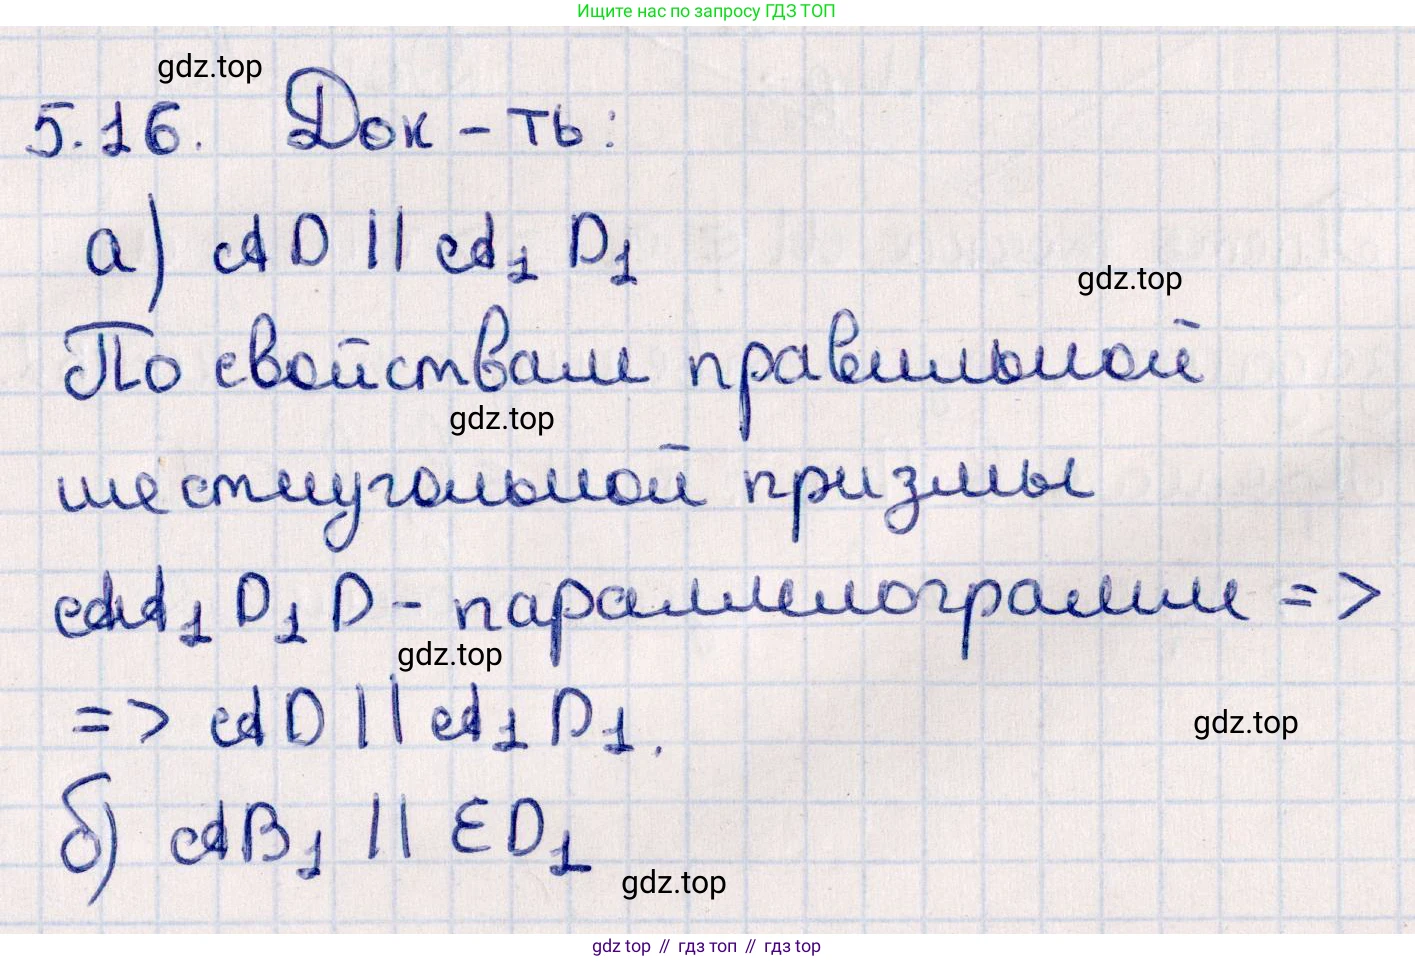 Ищите нас по запросу ГДЗ ТОП
gdz.top
5.16. Док-ть:
а) AD || A₁D₁
gdz.top
По свойствам правильной
gdz.top
шестиугольной призмы
AA₁D₁D - параллелограмм =>
gdz.top
=> AD || A₁D₁.
gdz.top
б) AB₁ || ED₁
gdz.top
gdz top // гдз топ // gdz top